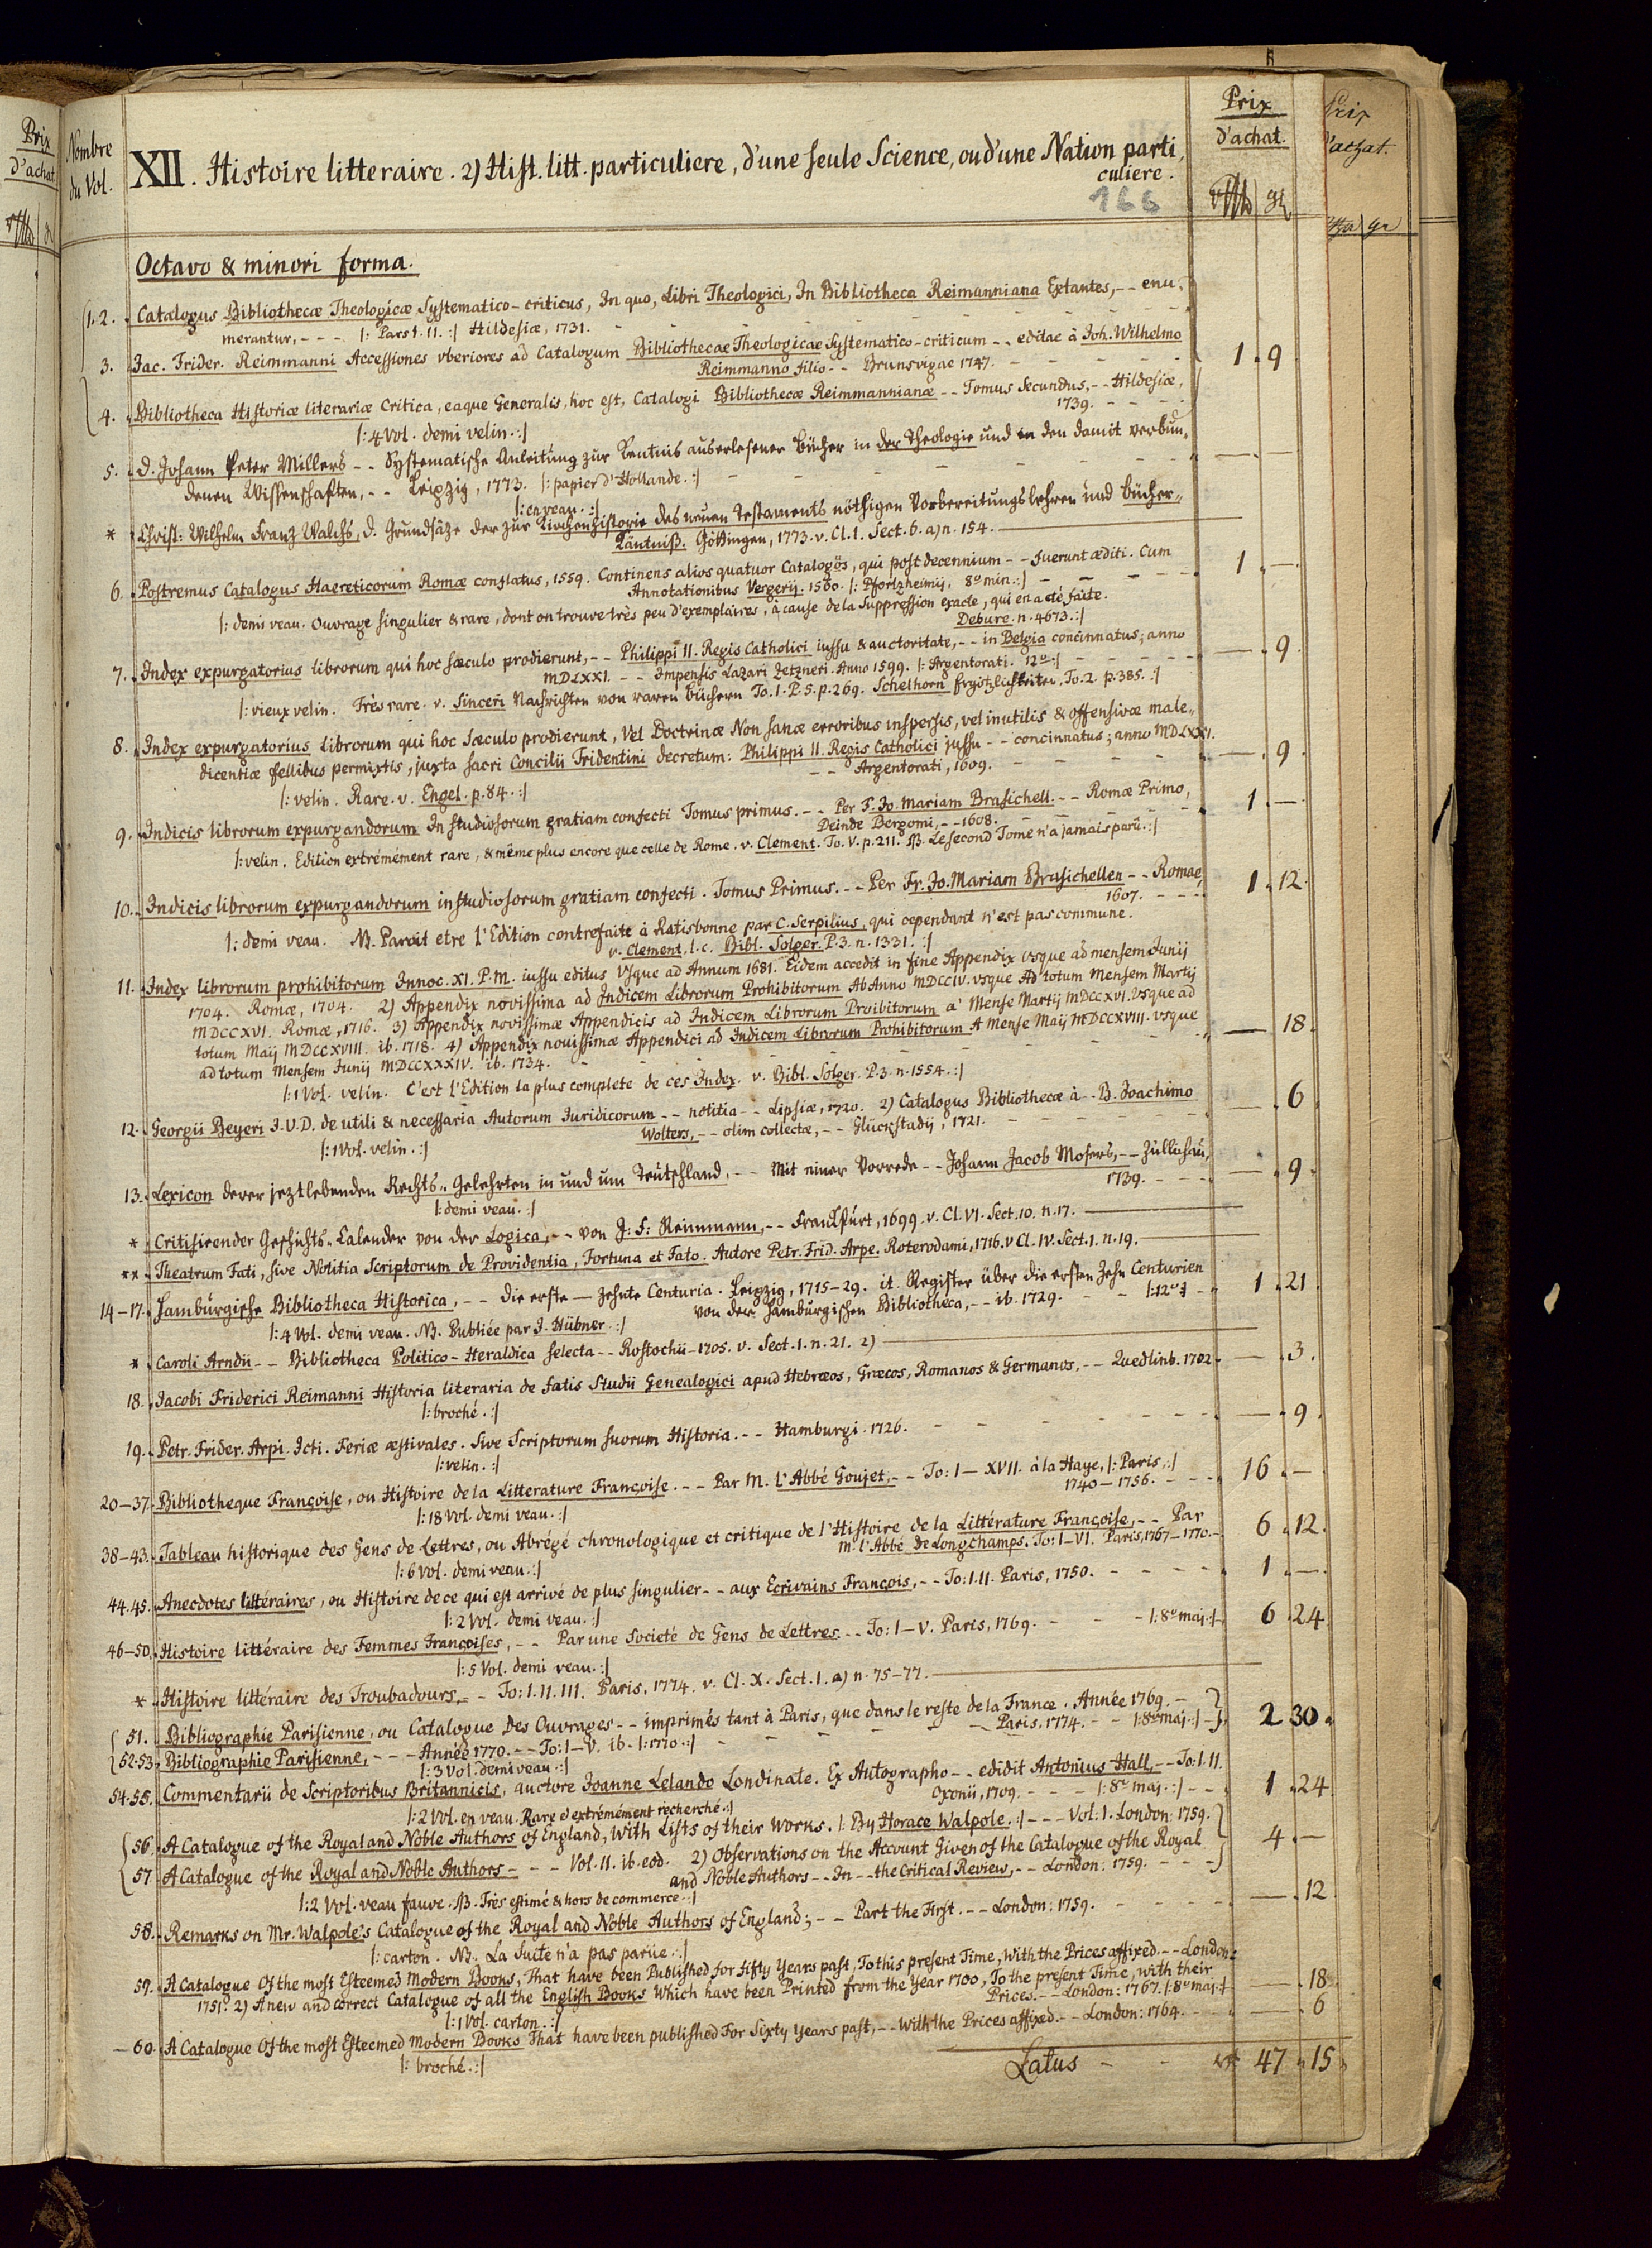 Prix
d'achat
Nombre
du Vol.
XII. Histoire litteraire. 2) Hist. litt. particuliere, d'une seule Science, ou d'une Nation parti„
culiere.
166
Prix
d'achat.
Prix
d'achat.
Octavo & minori forma.
1. 2. Catalogus Bibliothecæ Theologicæ Systematico-criticus, In quo, Libri Theologici, In Bibliotheca Reimanniana Extantes, -- enu„
merantur, - - - |: Pars I. II. :| Hildesiæ, 1731.
3. Jac. Frider. Reimmanni Accessiones vberiores ad Catalogum Bibliothecae Theologicae Systematico-criticum -- editae à Joh. Wilhelmo
Reimmanno filio -- Brunsvigae 1747. 1. 9.
4. Bibliotheca Historiæ literariæ Critica, eaque Generalis, hoc est, Catalogi Bibliothecæ Reimmannianæ -- Tomus Secundus, -- Hildesiæ,
1739.
|: 4 Vol. demi velin. :|
5. D. Johann Peter Millers -- Systematische Anleitung zur Kentnis auserlesener Bücher in der Theologie und in den damit verbun„
denen Wissenschaften, -- Leipzig, 1773. |: papier d'Hollande. :|
|: en veau. :|
* Christ: Wilhelm Franz Walchs, D. Grundsäze der zur Kirchenhistorie des neuen Testaments nöthigen Vorbereitungslehren und Bücher„
käntniß. Göttingen, 1773. v. Cl. 1. Sect. 6. a) n. 154.
6. Postremus Catalogus Haereticorum Romæ conflatus, 1559. Continens alios quatuor Catalogos, qui post decennium -- fuerunt æditi. Cum
Annotationibus Vergerij. 1560. |: Pfortzheimij, 8º min. :| 1. —
|: demi veau. Ouvrage singulier & rare, dont on trouve très peu d'exemplaires, à cause de la Suppression exacte, qui en a été faite.
Debure. n. 4673. :|
7. Index expurgatorius librorum qui hoc sæculo prodierunt, -- Philippi II. Regis Catholici iussu & auctoritate, -- in Belgia concinnatus; anno
MDLXXI. -- Impensis Lazari Zetzneri. Anno 1599. |: Argentorati. 12º :| — 9.
|: vieux velin. Très rare. v. Sinceri Nachrichten von raren Büchern To. 1. P. 5. p. 269. Schelhorn Ergötzlichkeiten. To. 2. p. 385. :|
8. Index expurgatorius Librorum qui hoc Sæculo prodierunt, Vel Doctrinæ Non sanæ erroribus inspersis, vel inutilis & offensivæ male„
dicentiæ fellibus permixtis, juxta sacri Concilii Tridentini decretum: Philippi II. Regis Catholici jussu -- concinnatus; anno MDLXXI.
-- Argentorati, 1609. — 9.
|: velin. Rare. v. Engel. p. 84. :|
9. Indicis librorum expurgandorum In studiosorum gratiam confecti Tomus primus. -- Per F. Jo. Mariam Brasichell. -- Romæ Primo,
Deinde Bergomi, -- 1608. 1. —
|: velin. Edition extrémément rare, & même plus encore que celle de Rome. v. Clement. To. V. p. 211. NB. Le second Tome n'a jamais parû. :|
10. Indicis librorum expurgandorum in studiosorum gratiam confecti. Tomus Primus. -- Per Fr. Jo. Mariam Brasichellen -- Romae,
1607. 1. 12.
|: demi veau. NB. Paroit etre l'Edition contrefaite à Ratisbonne par C. Serpilius, qui cependant n'est pas commune.
v. Clement. l. c. Bibl. Solger. P. 3. n. 1331. :|
11. Index librorum prohibitorum Innoc. XI. P. M. iussu editus Vsque ad Annum 1681. Eidem accedit in fine Appendix vsque ad mensem Junij
1704. Romæ, 1704. 2) Appendix novissima ad Indicem Librorum Prohibitorum Ab Anno MDCCIV. vsque Ad totum Mensem Martij
MDCCXVI. Romæ, 1716. 3) Appendix novissimæ Appendicis ad Indicem Librorum Proibitorum a' Mense Martij MDCCXVI. Vsque ad
totum Maij MDCCXVIII. ib. 1718. 4) Appendix nouissimæ Appendici ad Indicem Librorum Prohibitorum A Mense Maij MDCCXVIII. vsque
ad totum Mensem Junij MDCCXXXIV. ib. 1734. — 18.
|: 1 Vol. velin. C'est l'Edition la plus complete de ces Index. v. Bibl. Solger. P. 3. n. 1554. :|
12. Georgii Beyeri J. V. D. de utili & necessaria Autorum Iuridicorum -- notitia -- Lipsiæ, 1720. 2) Catalogus Bibliothecæ à -- B. Joachimo
Wolters, -- olim collectæ, -- Glückstadij, 1721. — 6.
|: 1 Vol. velin. :|
13. Lexicon derer jeztlebenden Rechts„Gelehrten in und um Teutschland, -- Mit einer Vorrede -- Johann Jacob Mosers, -- Züllichau,
1739. — 9.
|: demi veau. :|
* Critisirender Geschichts„Calender von der Logica, -- von J: F: Reimmann, -- Frankfurt, 1699. v. Cl. VI. Sect. 10. n. 17.
** Theatrum Fati, sive Notitia Scriptorum de Providentia, Fortuna et Fato. Autore Petr. Frid. Arpe. Roterodami, 1716. v Cl. IV. Sect. 1. n. 19.
14-17. Hamburgische Bibliotheca Historica, -- die erste — zehnte Centuria. Leipzig, 1715-29. it. Register über die ersten Zehn Centurien
von der Hamburgischen Bibliotheca, -- ib. 1729. |: 12º :| 1. 21.
|: 4 Vol. demi veau. NB. Publiée par J. Hübner. :|
* Caroli Arndii -- Bibliotheca Politico-Heraldica selecta -- Rostochii - 1705. v. Sect. 1. n. 21. 2)
18. Jacobi Friderici Reimanni Historia literaria de fatis Studii Genealogici apud Hebræos, Græcos, Romanos & Germanos, -- Quedlinb. 1702. — 3.
|: broché. :|
19. Petr. Frider. Arpi. Icti. Feriæ æstivales. Sive Scriptorum suorum Historia. -- Hamburgi. 1726. — 9.
|: velin. :|
20-37. Bibliotheque Françoise, ou Histoire de la Litterature Françoise. -- Par M. l'Abbé Goujet, -- To: I — XVII. à la Haye, |: Paris, :|
1740-1756. 16. —
|: 18 Vol. demi veau. :|
38-43. Tableau historique des Gens de Lettres, ou Abrégé chronologique et critique de l'Histoire de la Littérature Françoise, -- Par
M. l'Abbé de Longchamps. To: I-VI. Paris, 1767-1770. 6. 12.
|: 6 Vol. demi veau. :|
44. 45. Anecdotes littéraires, ou Histoire de ce qui est arrivé de plus singulier -- aux Ecrivains François, -- To: I. II. Paris, 1750. 1. —
|: 2 Vol. demi veau. :|
46-50. Histoire littéraire des Femmes Françoises, -- Par une Societé de Gens de Lettres. -- To: I-V. Paris, 1769. |: 8º maj. :| 6. 24.
|: 5 Vol. demi veau. :|
* Histoire littéraire des Troubadours, -- To: I. II. III. Paris, 1774. v. Cl. X. Sect. 1. a) n. 75-77.
51. Bibliographie Parisienne, ou Catalogue des Ouvrages -- imprimés tant à Paris, que dans le reste de la France. Année 1769. -
Paris, 1774. |: 8º maj. :|
52-53. Bibliographie Parisienne, - - - Année 1770. -- To: I-V. ib. |: 1770. :| 2 30.
|: 3 Vol. demi veau. :|
54. 55. Commentarii de Scriptoribus Britannicis, auctore Joanne Lelando Londinate. Ex Autographo -- edidit Antonius Hall, -- To: I. II.
Oxonii, 1709. |: 8º maj. :| 1. 24
|: 2 Vol. en veau. Rare & extrémément recherché. :|
56. A Catalogue of the Royal and Noble Authors of England, With Lists of their Works. |: By Horace Walpole, :| - - - Vol: I. London: 1759.
57. A Catalogue of the Royal and Noble Authors - - - Vol. II. ib. eod. 2) Observations on the Account Given of the Catalogue of the Royal
and Noble Authors -- In -- the Critical Review, -- London: 1759. 4. —
|: 2 Vol. veau fauve. NB. Très estimé & hors de commerce. :|
58. Remarks on Mr. Walpole's Catalogue of the Royal and Noble Authors of England; -- Part the First. -- London: 1759. — 12
|: carton. NB. La Suite n'a pas parûe. :|
59. A Catalogue Of the most Esteemed Modern Books, That have been Published for fifty Years past, To this present Time, With the Prices affixed. -- London:
1751. 2) A new and correct Catalogue of all the English Books Which have been Printed from the Year 1700, To the present Time, with their
Prices. -- London: 1767. |: 8º maj. :| — 18.
|: 1 Vol. carton. :|
60. A Catalogue Of the most Esteemed Modern Books That have been published For Sixty Years past, -- With the Prices affixed. -- London: 1764. — 6
|: broché. :|
Latus - - 47. 15